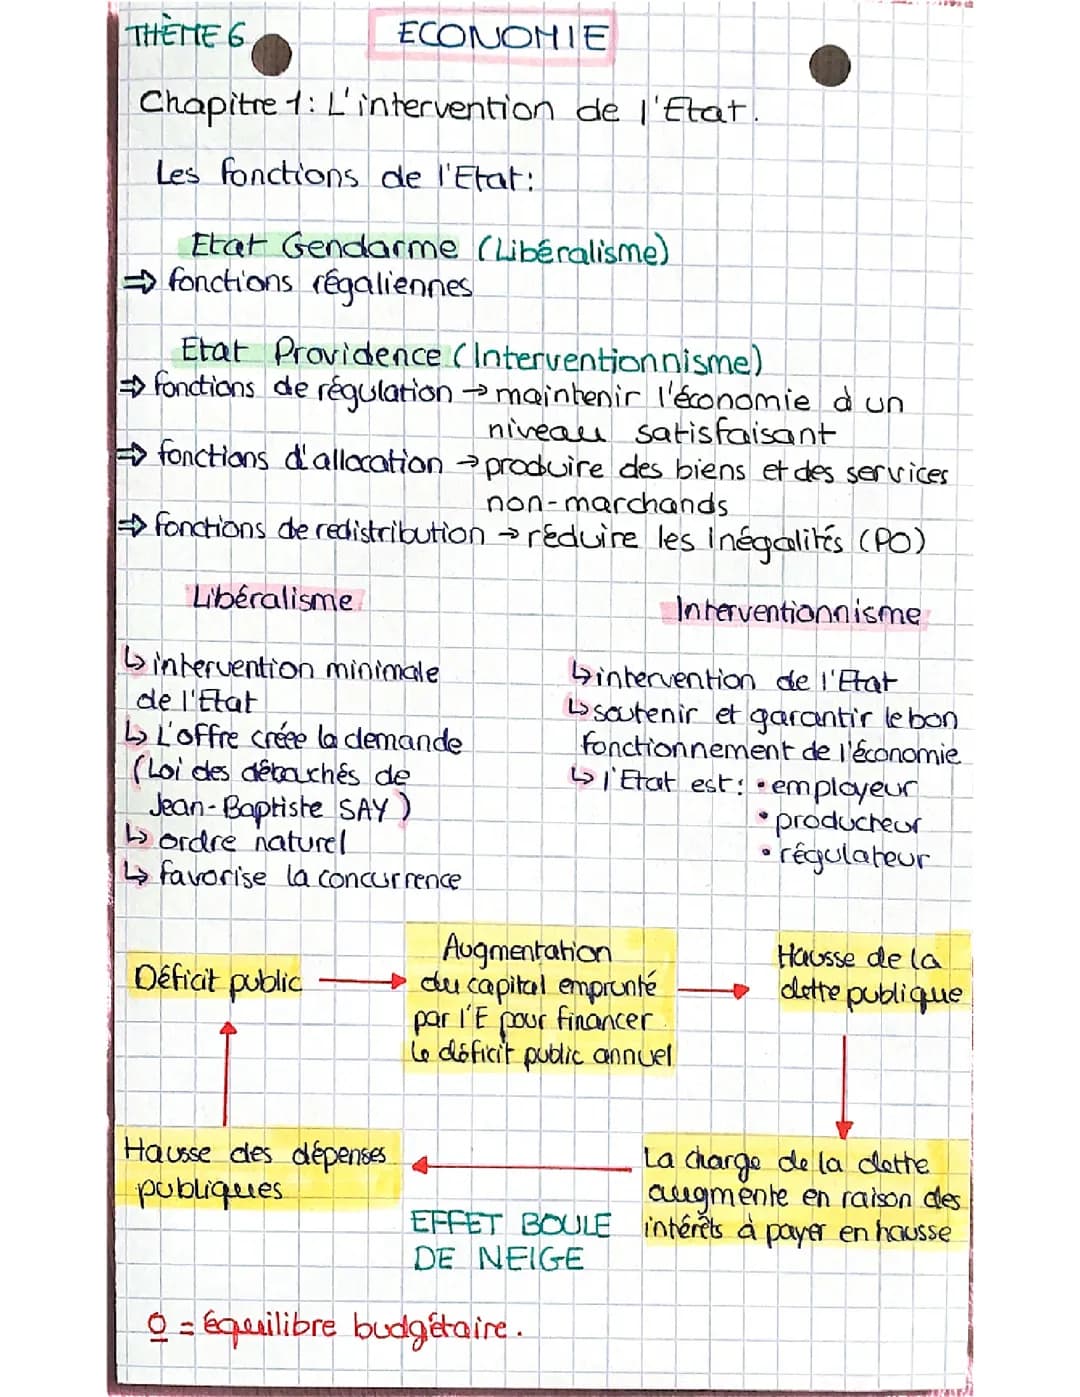 THÈME 6
ECONOMIE
Chapitre 1: L'intervention de l'Etat.
Les fonctions de l'Etat:
Etat Gendarme (Libéralisme)
⇒ fonctions régaliennes
Etat Providence (Interventionnisme)
⇒ fonctions de régulation → maintenir l'économie à un
niveau satisfaisant
⇒ fonctions d'allocation → produire des biens et des services
non-marchands
⇒ fonctions de redistribution → réduire les inégalités (PO)
Libéralisme
↳ intervention minimale
de l'Etat
↳ L'offre créée la demande
(Loi des débauchés de
Jean-Baptiste SAY)
↳ ordre naturel
↳ favorise la concurrence
Interventionnisme
↳ intervention de l'Etat
↳ soutenir et garantir le bon
fonctionnement de l'économie
↳ l'Etat est: • employeur
• producteur
• régulateur
Déficit public →
Augmentation
du capital emprunté
par l'E pour financer
le déficit public annuel
→ Hausse de la
dette publique
Hausse des dépenses
publiques
La charge de la dette
augmente en raison des
intérêts à payer en hausse
EFFET BOULE
DE NEIGE
0 = équilibre budgétaire.